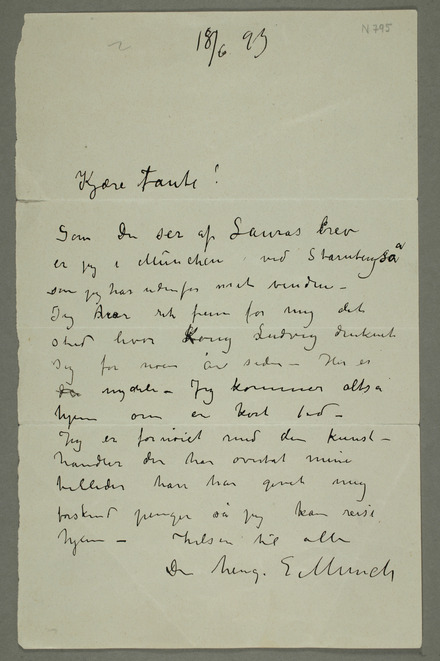 N 795
18/6 93
Kjære Tante!
Som Du ser af Lauras brev
er jeg i München ved Starnbergsøa
som jeg har udenfor mit vindu –
Jeg har ret frem for mig det
sted hvor Kong Ludvig druknet
sig for noen år siden – Her er
nydeli – Jeg kommer altså
hjem om er kort tid –
Jeg er fornøiet med den kunst-
handler der har overtat mine
billeder han har gevet mig
forskud penger så jeg kan reise
hjem – Hilsen til alle
Din heng. E Munch